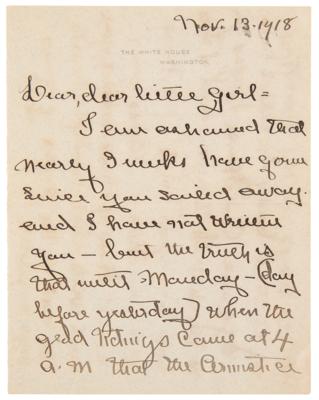 Nov. 13-1918
THE WHITE HOUSE
WASHINGTON
Dear, dear little Girl=
I am ashamed that
nearly 3 weeks have gone
since you sailed away.
and I have not written
you - but the truth is
that until Monday - (day
before yesterday) when the
glad tidings came at 4
a.m that the Armistice